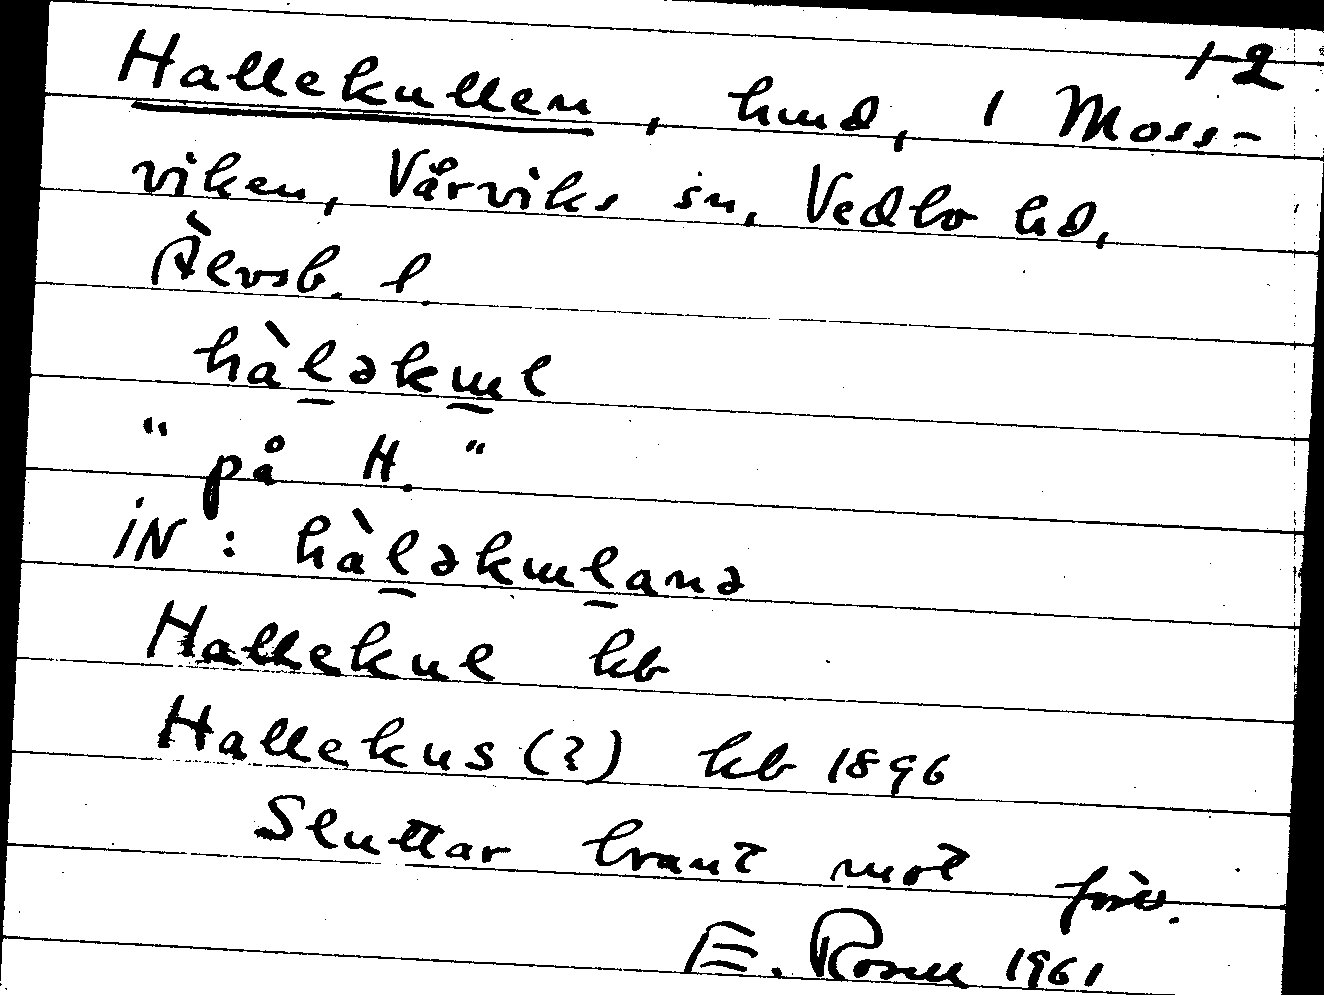 1-2
Hallekullen, hmd, i Moss-
viken, Vårviks sn, Vedbo hd,
Älvsb. l.
hàl̲əkm̲l
"på H."
iN: hàl̲əkml̲anə
Hallekul kb
Hallekus (?) kb 1896
Sluttar brant mot
E. Rosell 1961